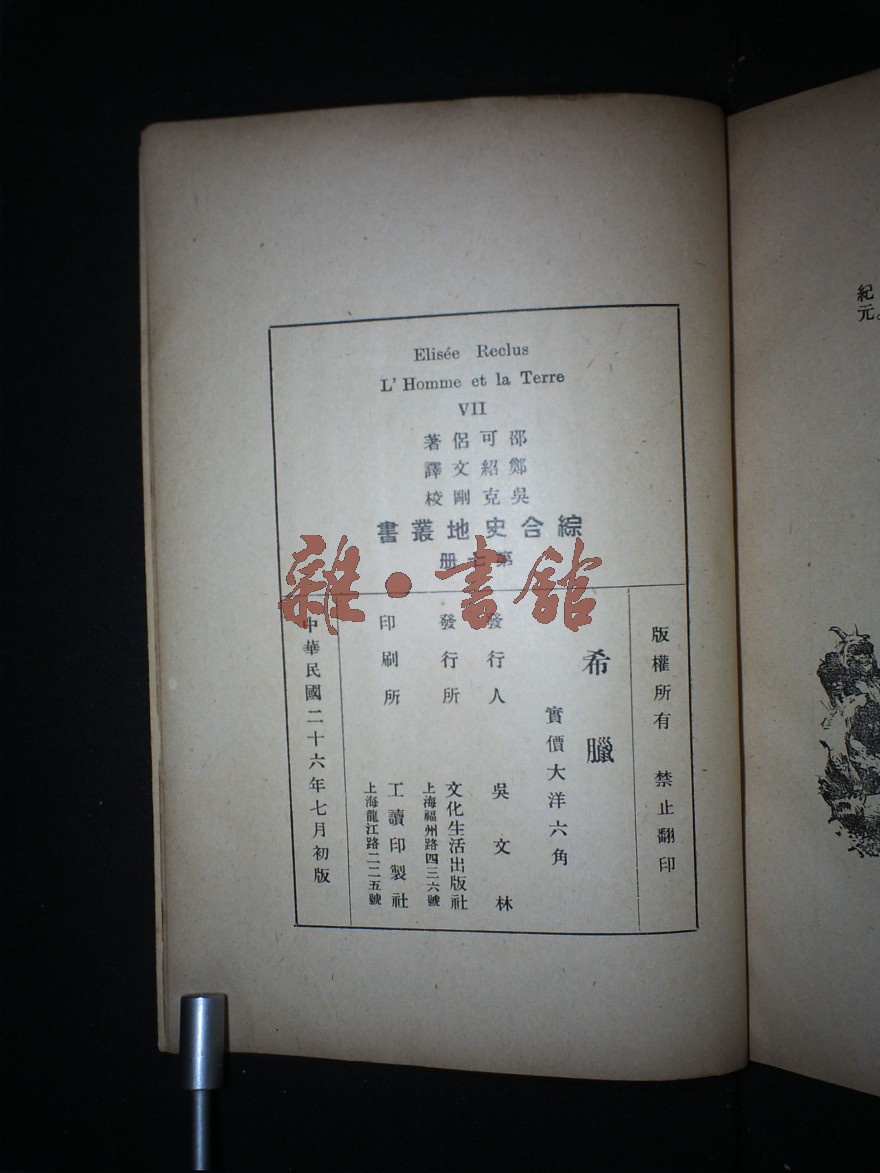 Elisée Reclus
L'Homme et la Terre
VII
邵可侶著
鄭紹文譯
吳克剛校
綜合史地叢書
第七册
雜·書館
版權所有 禁止翻印
希臘
實價大洋六角
發行人 吳文林
發行所 文化生活出版社
上海福州路四三六號
印刷所 工讀印製社
上海龍江路二二五號
中華民國二十六年七月初版
紀元。